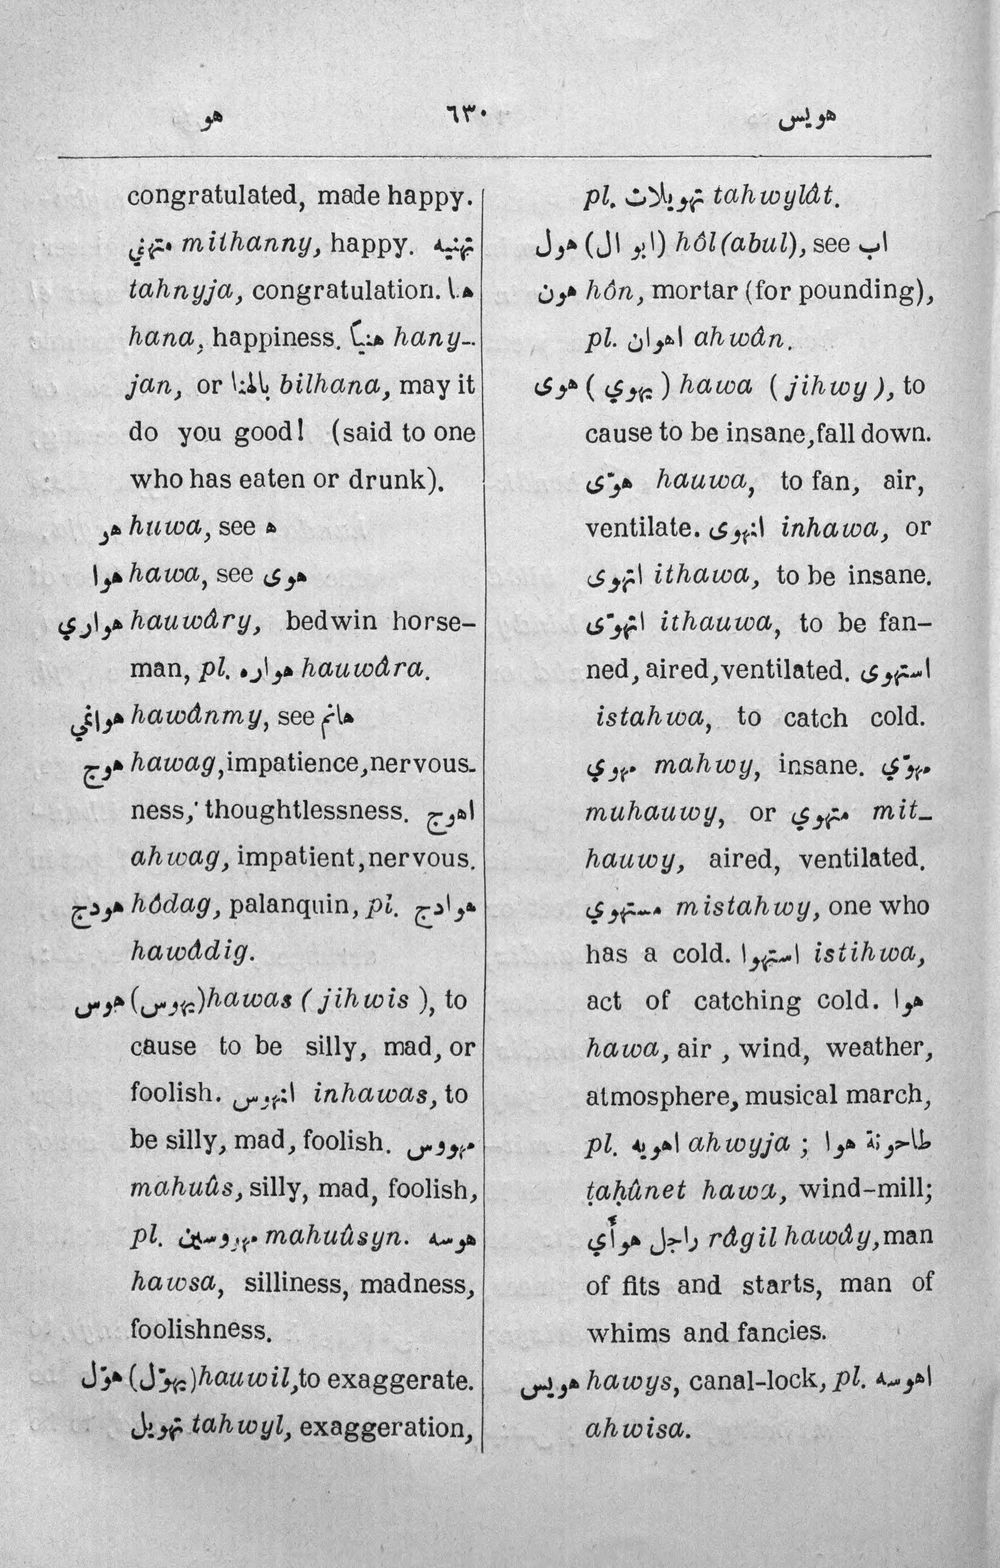 هو ٦٣٠ هويس
congratulated, made happy.
متهني mithanny, happy. تهنيه
tahnyja, congratulation. هنا
hana, happiness. هنيئًا hany-
jan, or بالهنا bilhana, may it
do you good! (said to one
who has eaten or drunk).
هو huwa, see ه
هوا hawa, see هوى
هواري hauwâry, bedwin horse-
man, pl. هواره hauwâra.
هوانمي hawânmy, see هانم
هوج hawag, impatience, nervous-
ness, thoughtlessness. اهوج
ahwag, impatient, nervous.
هودج hôdag, palanquin, pl. هوادج
hawâdig.
هوس (يهوس) hawas (jihwis), to
cause to be silly, mad, or
foolish. انهوس inhawas, to
be silly, mad, foolish. مهووس
mahuûs, silly, mad, foolish,
pl. مهووسين mahuûsyn. هوسه
hawsa, silliness, madness,
foolishness.
هوّل (يهوّل) hauwil, to exaggerate.
تهويل tahwyl, exaggeration,
pl. تهويلات tahwylât.
هول (ابو ال) hôl (abul), see اب
هون hôn, mortar (for pounding),
pl. اهوان ahwân.
هوى (يهوي) hawa (jihwy), to
cause to be insane, fall down.
هوّى hauwa, to fan, air,
ventilate. انهوى inhawa, or
اتهوى ithawa, to be insane.
اتهوّى ithauwa, to be fan-
ned, aired, ventilated. استهوى
istahwa, to catch cold.
مهوي mahwy, insane. مهوّي
muhauwy, or متهوي mit-
hauwy, aired, ventilated.
مستهوي mistahwy, one who
has a cold. استهوا istihwa,
act of catching cold. هوا
hawa, air, wind, weather,
atmosphere, musical march,
pl. اهويه ahwyja; طاحونة هوا
ṭaḥûnet hawa, wind-mill;
راجل هوأي râgil hawây, man
of fits and starts, man of
whims and fancies.
هويس hawys, canal-lock, pl. اهوسه
ahwisa.